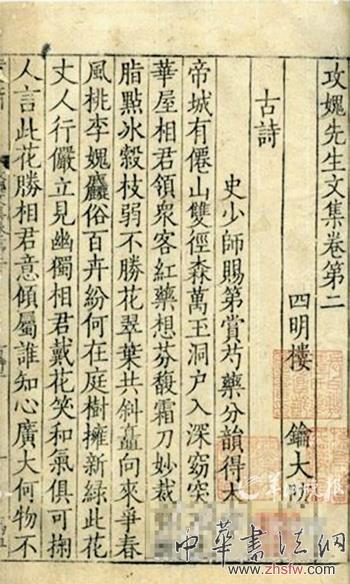 攻媿先生文集卷第二
四明樓 鑰大防
古詩
史少師賜第賞芍藥分韻得木
帝城有僊山雙徑森萬玉洞户入深窈突
華屋相君領衆客紅藥想芬馥霜刀妙裁
脂點氷縠枝弱不勝花翠葉共斜矗向來爭春
風桃李媿麤俗百卉紛何在庭樹擁新緑此花
丈人行儼立見幽獨相君戴花笑和氣俱可掬
人言此花勝相君意傾屬誰知心廣大何物不
中華書法網
www.zhsfw.com